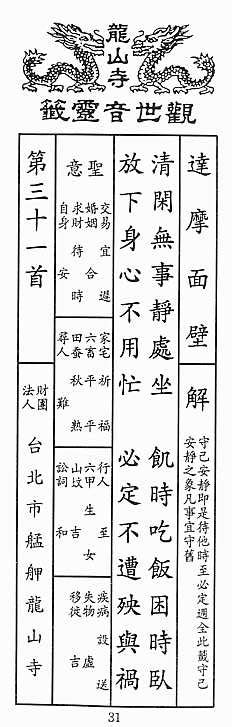 龍山寺
觀世音靈籤
達摩面壁
解
守己安靜即是待他時至必定週全此籤守己
安靜之象凡事宜守舊
清閑無事靜處坐 飢時吃飯困時臥
放下身心不用忙 必定不遭殃與禍
聖意
交易 宜遲
婚姻 合
求財 待時
自身 安
家宅 祈福
六畜 平平
田蚕 秋熱
尋人 難
行人 至
六甲 生女
山坟 吉
訟詞 和
疾病 設送
失物 虛
移徙 吉
第三十一首
財團
法人
台北市艋舺龍山寺
31